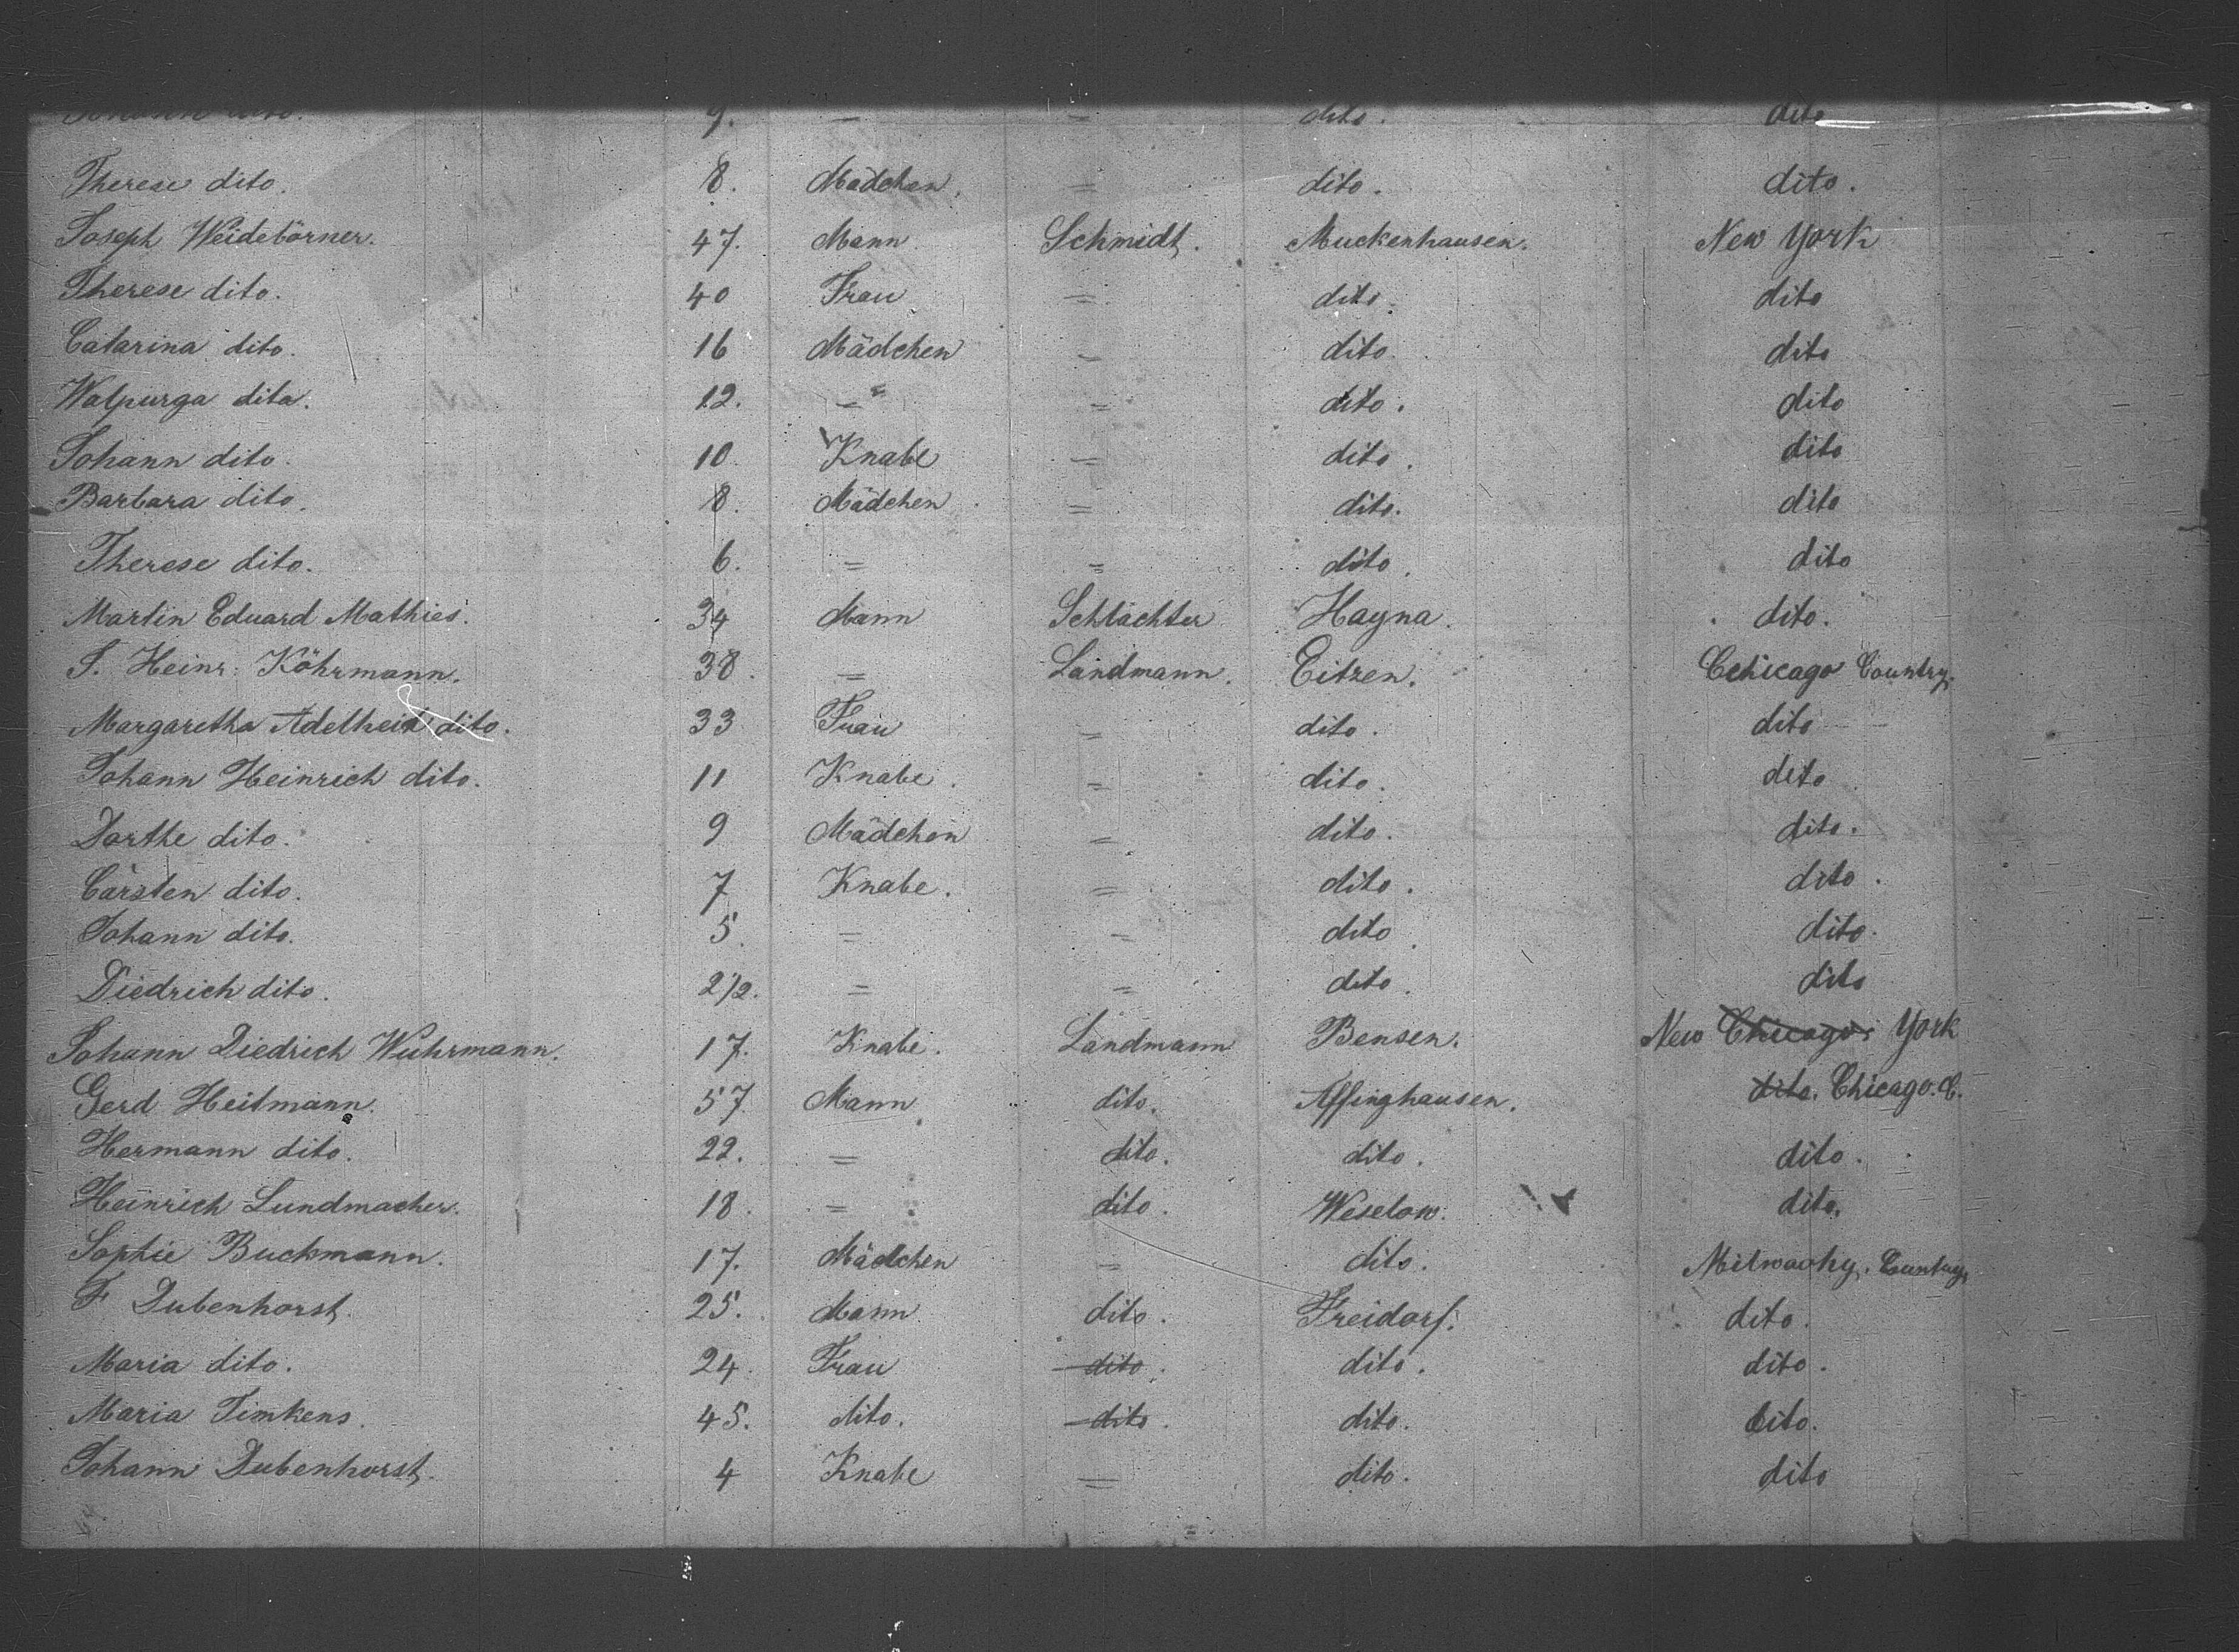 Johann dito. 9. — = dito. dito
Therese dito. 8. Mädchen. = dito. dito.
Joseph Weidebörner. 47. Mann. Schmidt. Muckenhausen. New York
Therese dito. 40 Frau = dito. dito
Catarina dito. 16 Mädchen = dito. dito
Walpurga dita. 12. =" = dito. dito
Johann dito. 10. Knabe = dito. dito
Barbara dito. 8. Mädchen. = dito. dito
Therese dito. 6. = = dito. dito
Martin Eduard Mathies. 34 Mann Schlächter Hayna. dito.
J. Heinr. Köhrmann. 38. = Landmann. Eitzen. Cchicago Country.
Margaretha Adelheid dito. 33 Frau = dito. dito
Johann Heinrich dito. 11 Knabe. = dito. dito
Dorthe dito. 9 Mädchen = dito. dito.
Carsten dito. 7 Knabe. = dito. dito.
Johann dito. 5. = = dito. dito.
Diedrich dito. 2 1/2. = = dito. dito
Johann Diedrich Wuhrmann. 17. Knabe. Landmann Bensen. New Chicago. York
Gerd Heitmann. 57. Mann dito. Affinghausen. dito. Chicago. C.
Hermann dito. 22. = dito. dito. dito.
Heinrich Lundmacher. 18. = dito. Weselow. dito.
Sophie Buckmann. 17. Mädchen = dito. Milwachy. Cuntuy.
F Dubenhorst. 25. Mann. dito. Freidorf. dito.
Maria dito. 24. Frau dito. dito. dito.
Maria Timkens. 45. dito. dito. dito. dito.
Johann Dubenhorst. 4 Knabe = dito. dito